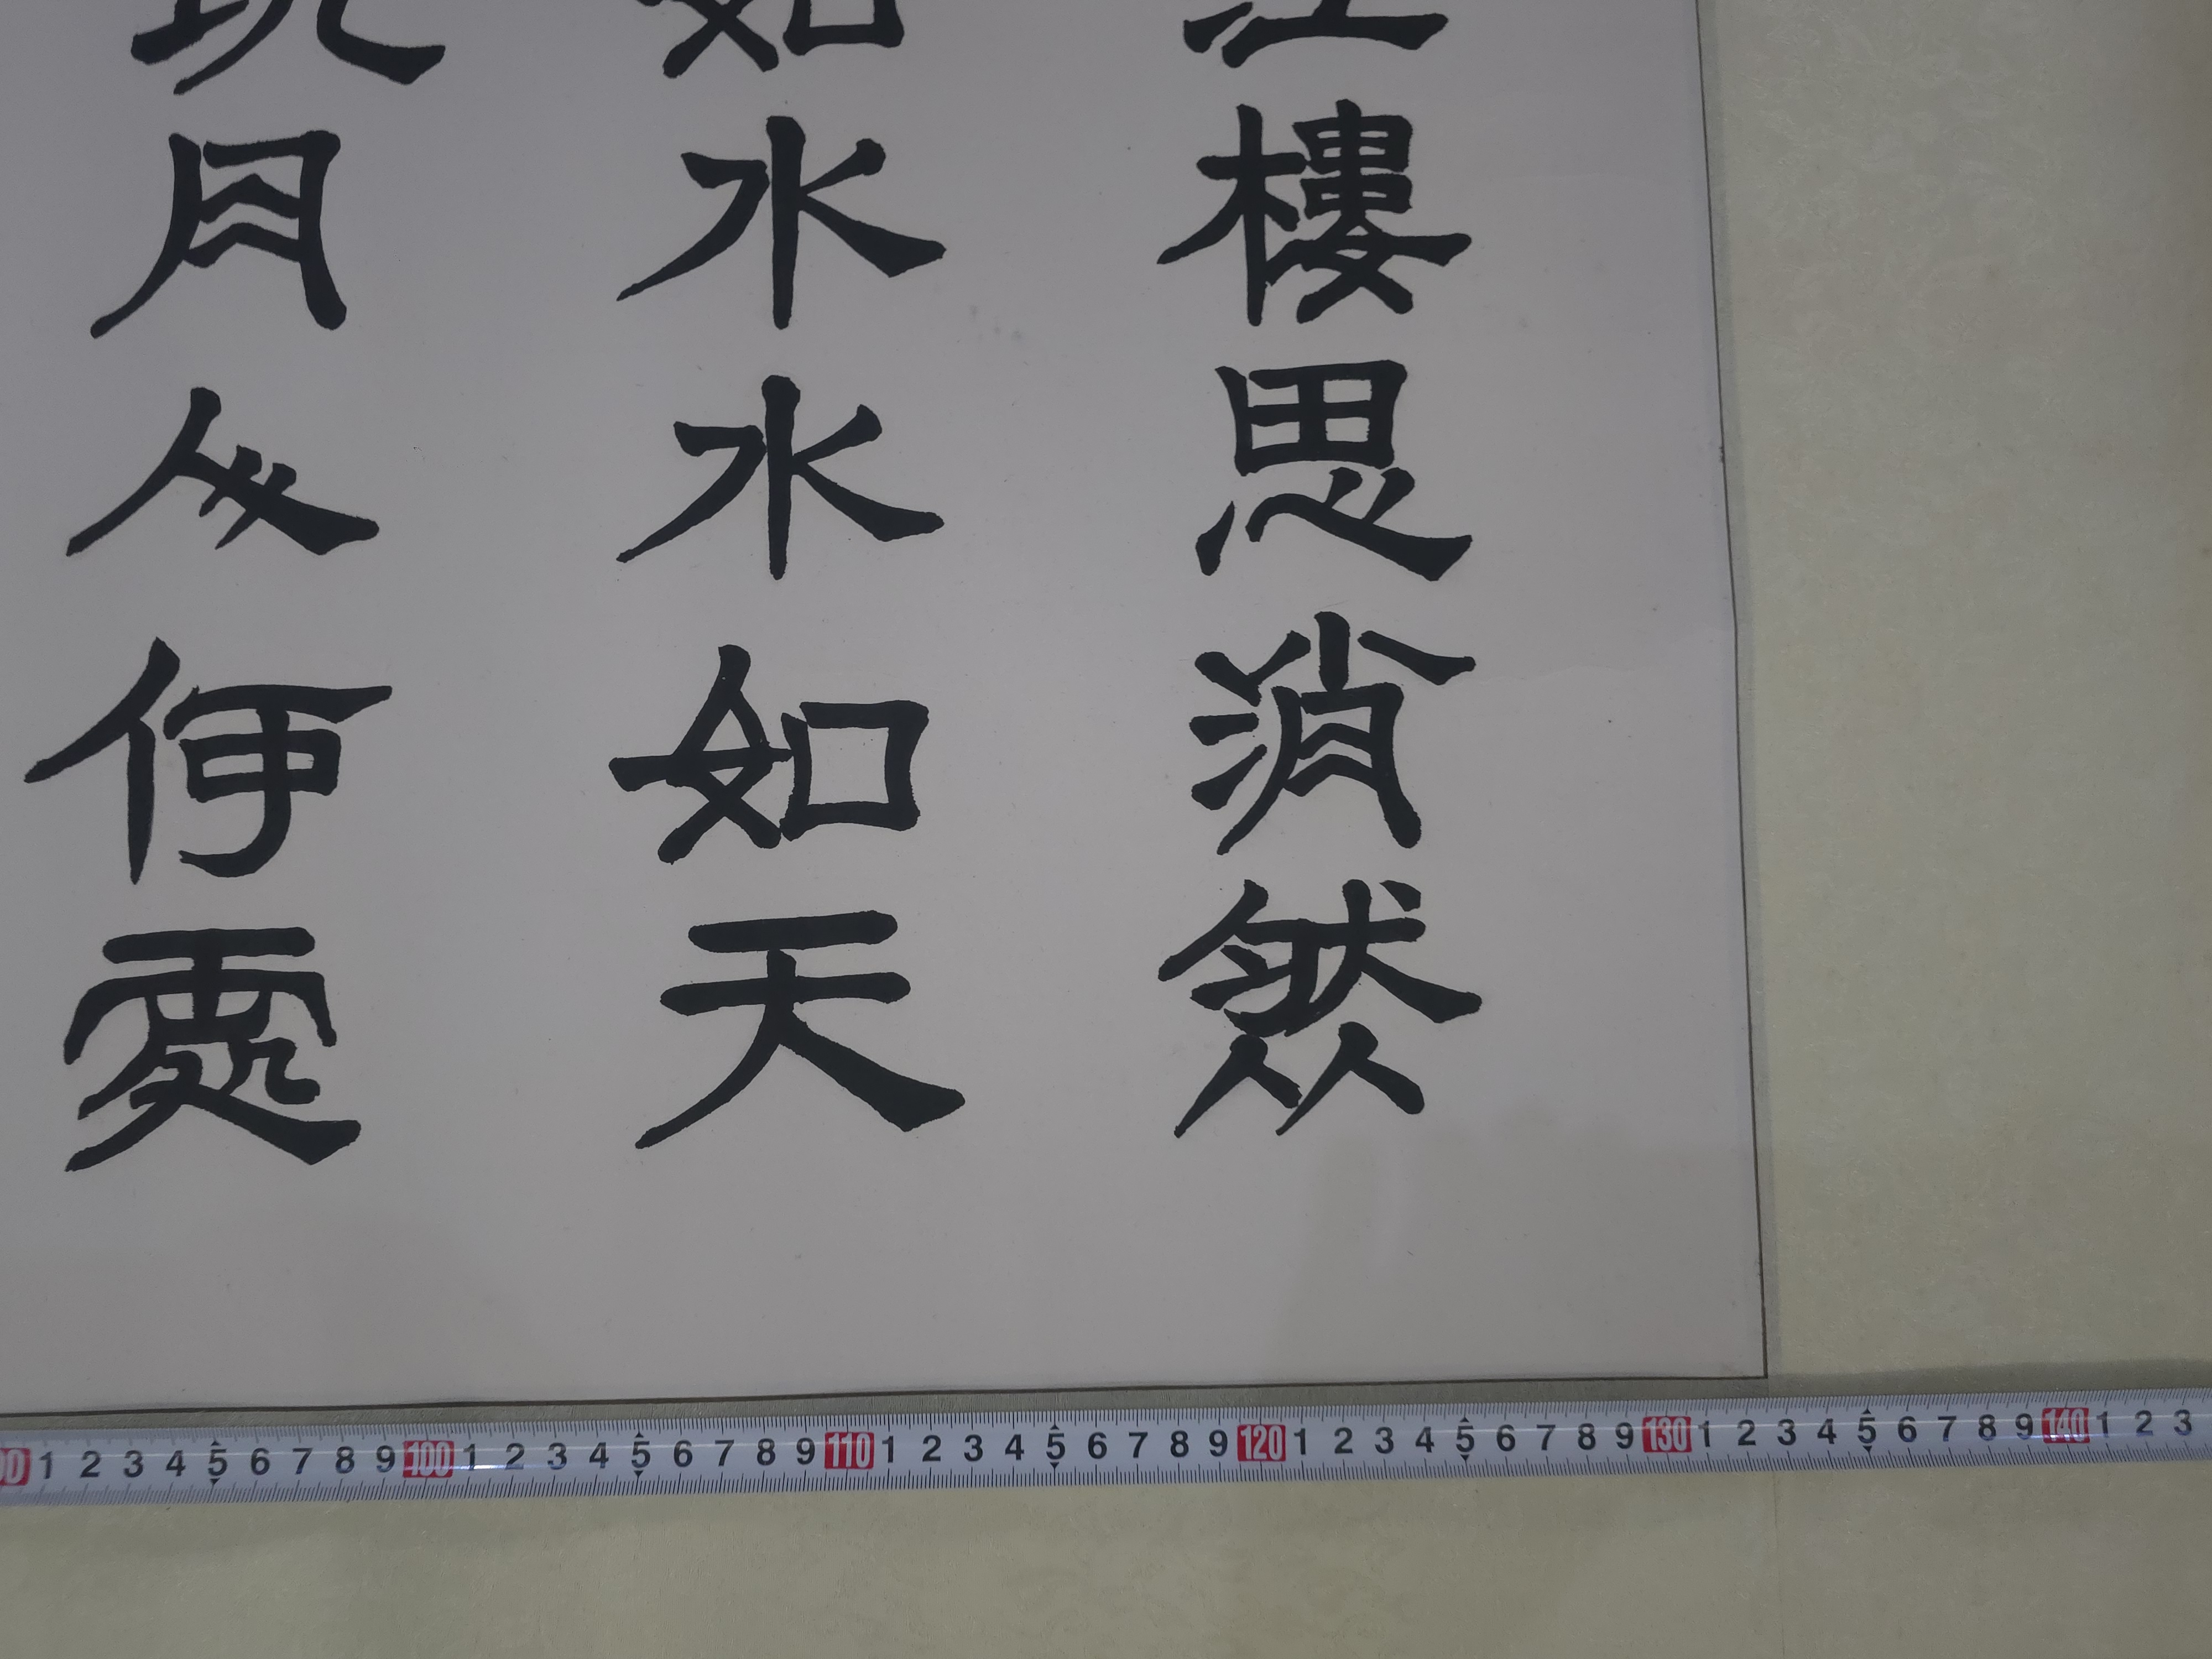 江樓思消然
如水水如天
玩月人何處
1 2 3 4 5 6 7 8 9 100 1 2 3 4 5 6 7 8 9 110 1 2 3 4 5 6 7 8 9 120 1 2 3 4 5 6 7 8 9 130 1 2 3 4 5 6 7 8 9 140 1 2 3